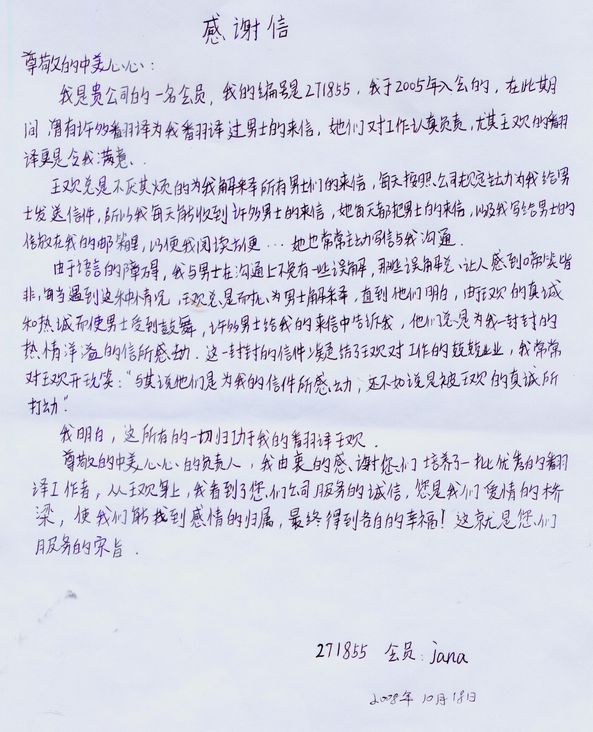 感谢信
尊敬的中美心心：
我是贵公司的一名会员，我的编号是271855，我于2005年入会的，在此期
间，曾有许多翻译为我翻译过男士的来信，她们对工作认真负责，尤其王欢的翻
译更是令我满意、.
王欢总是不厌其烦的为我解释所有男士们的来信，每天按照公司规定主动为我给男
士发送信件，所以我每天能收到许多男士的来信，她每天都把男士的来信，以及我写给男士的
信放在我的邮箱里，以便我阅读方便…她也常常主动写信与我沟通．
由于语言的障碍，我与男士在沟通上不免有一些误解，那些误解总让人感到啼笑皆
非，每当遇到这种情况，王欢总是耐心为男士解释，直到他们明白，由于王欢的真诚
和热诚而使男士受到鼓舞，许多男士给我的来信中告诉我，他们说是为我一封封的
热情洋溢的信所感动．这一封封的信件凝结了王欢对工作的兢兢业业，我常常
对王欢开玩笑：“与其说他们是为我的信件所感动，还不如说是被王欢的真诚所
打动”
我明白，这所有的一切归功于我的翻译王欢．
尊敬的中美心心的负责人，我由衷的感谢您们培养了一批优秀的翻
译工作者，从王欢身上，我看到了您们公司服务的诚信，您是我们爱情的桥
梁，使我们能找到感情的归属，最终得到各自的幸福！这就是您们
服务的宗旨．
271855 会员：jana
2008年10月18日